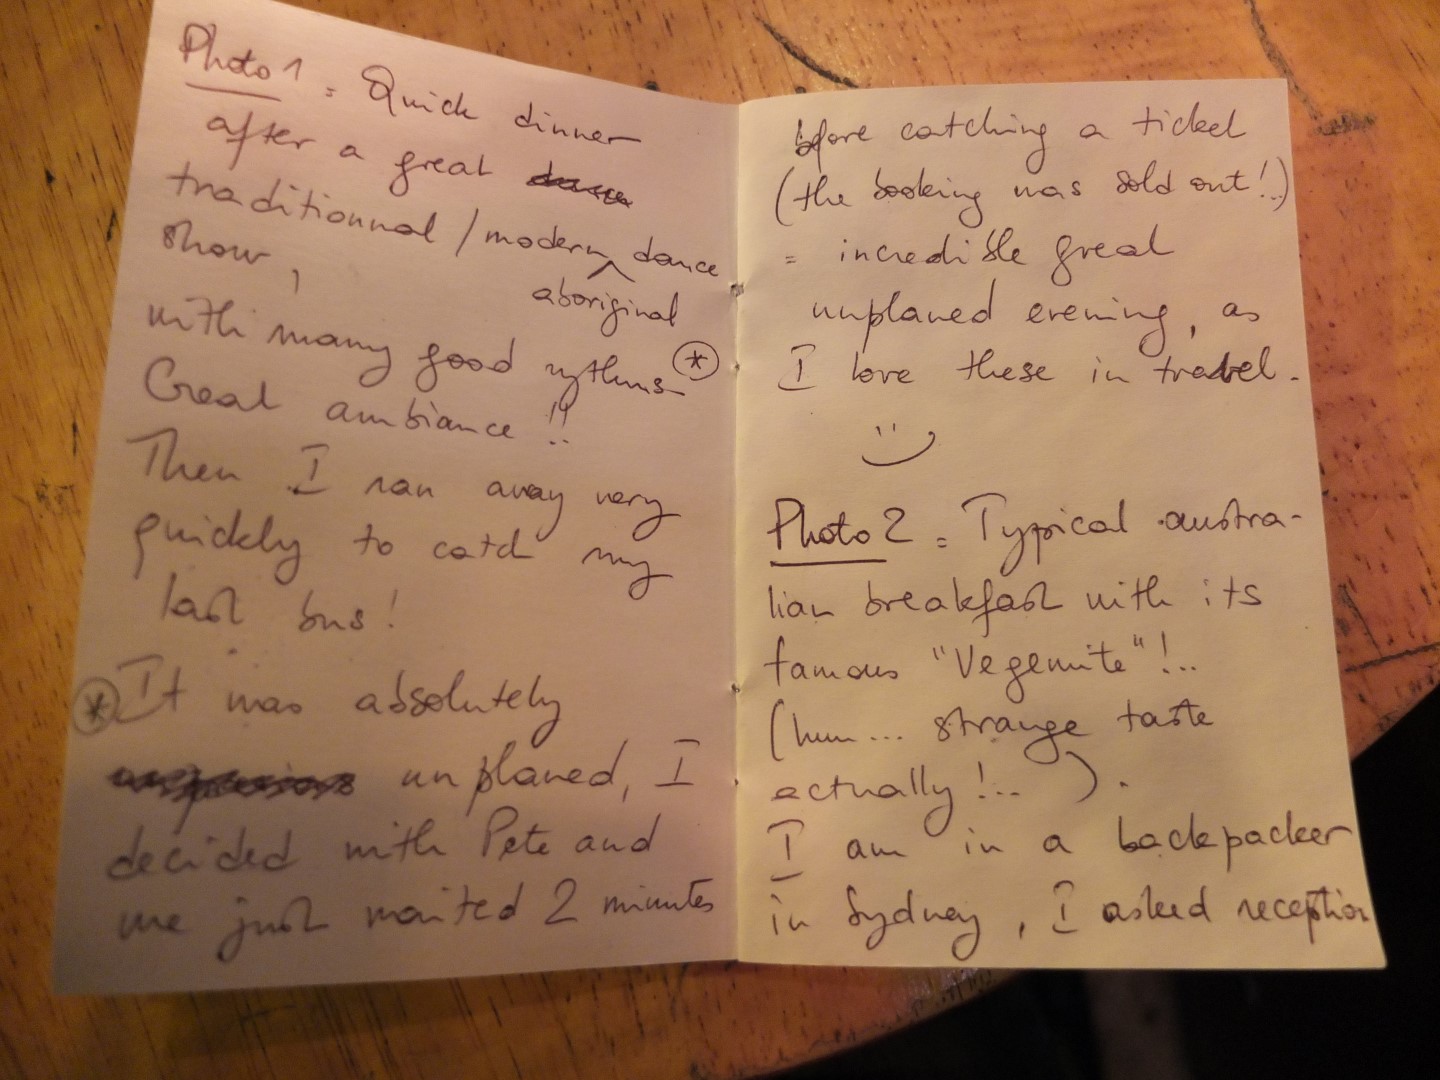 Photo 1 = Quick dinner
after a great
traditionnal / modern dance
aboriginal
show,
with many good rythms *
Great ambiance !!
Then I ran away very
quickly to catch my
last bus !
* It was absolutely
unplaned, I
decided with Pete and
we just waited 2 minutes
before catching a ticket
(the booking was sold out !..)
= incredible great
unplaned evening, as
I love these in travel.
Photo 2 = Typical austra-
lian breakfast with its
famous "Vegemite" !..
(hum... strange taste
actually !.. ).
I am in a backpacker
in Sydney, I asked reception